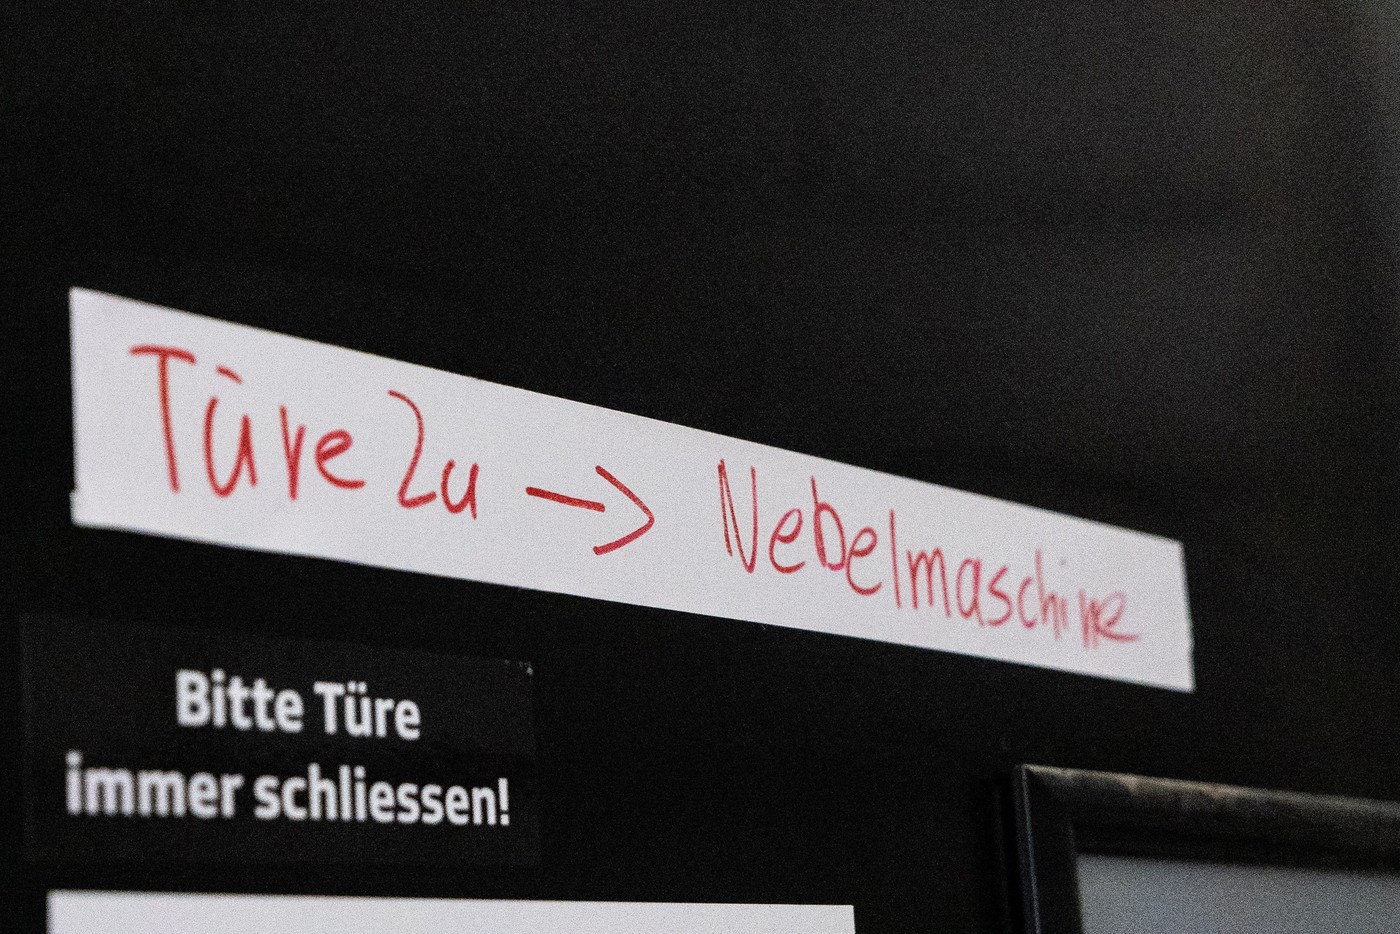 Türe Zu → Nebelmaschine
Bitte Türe
immer schliessen!